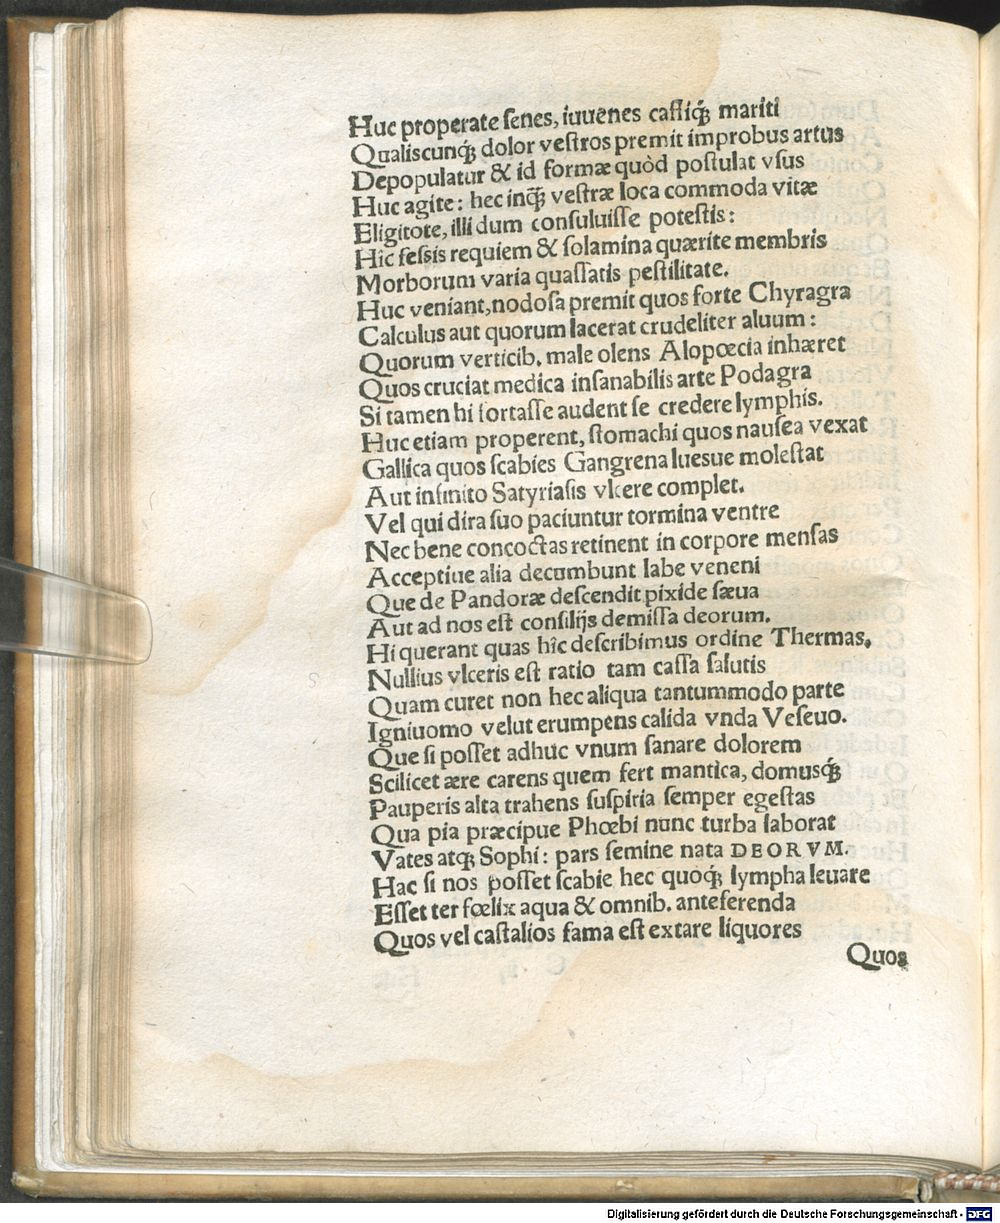 Huc properate ſenes, iuuenes caſtiq́; mariti
Qualiscunq́; dolor veſtros premit improbus artus
Depopulatur & id formæ quòd poſtulat vſus
Huc agite: hec inq̃; veſtræ loca commoda vitæ
Eligitote, illi dum conſuluiſſe poteſtis:
Hic feſsis requiem & ſolamina quærite membris
Morborum varia quaſſatis peſtilitate.
Huc veniant, nodoſa premit quos forte Chyragra
Calculus aut quorum lacerat crudeliter aluum:
Quorum verticib. male olens Alopœcia inhæret
Quos cruciat medica inſanabilis arte Podagra
Si tamen hi fortaſſe audent ſe credere lymphis.
Huc etiam properent, ſtomachi quos nauſea vexat
Gallica quos ſcabies Gangrena lueſue moleſtat
Aut infinito Satyriaſis vlcere complet.
Vel qui dira ſuo paciuntur tormina ventre
Nec bene concoctas retinent in corpore menſas
Acceptiue alia decumbunt labe veneni
Que de Pandoræ deſcendit pixide ſæua
Aut ad nos eſt conſilijs demiſſa deorum.
Hi querant quas hîc deſcribimus ordine Thermas.
Nullius vlceris eſt ratio tam caſſa ſalutis
Quam curet non hec aliqua tantummodo parte
Igniuomo velut erumpens calida vnda Veſeuo.
Que ſi poſſet adhuc vnum ſanare dolorem
Scilicet ære carens quem fert mantica, domusq́;
Pauperis alta trahens ſuſpiria ſemper egeſtas
Qua pia præcipue Phœbi nunc turba laborat
Vates atq́; Sophi: pars ſemine nata DEORVM.
Hac ſi nos poſſet ſcabie hec quoq́; lympha leuare
Eſſet ter fœlix aqua & omnib. anteferenda
Quos vel caſtalios fama eſt extare liquores
Quos
Digitalisierung gefördert durch die Deutsche Forschungsgemeinschaft - DFG